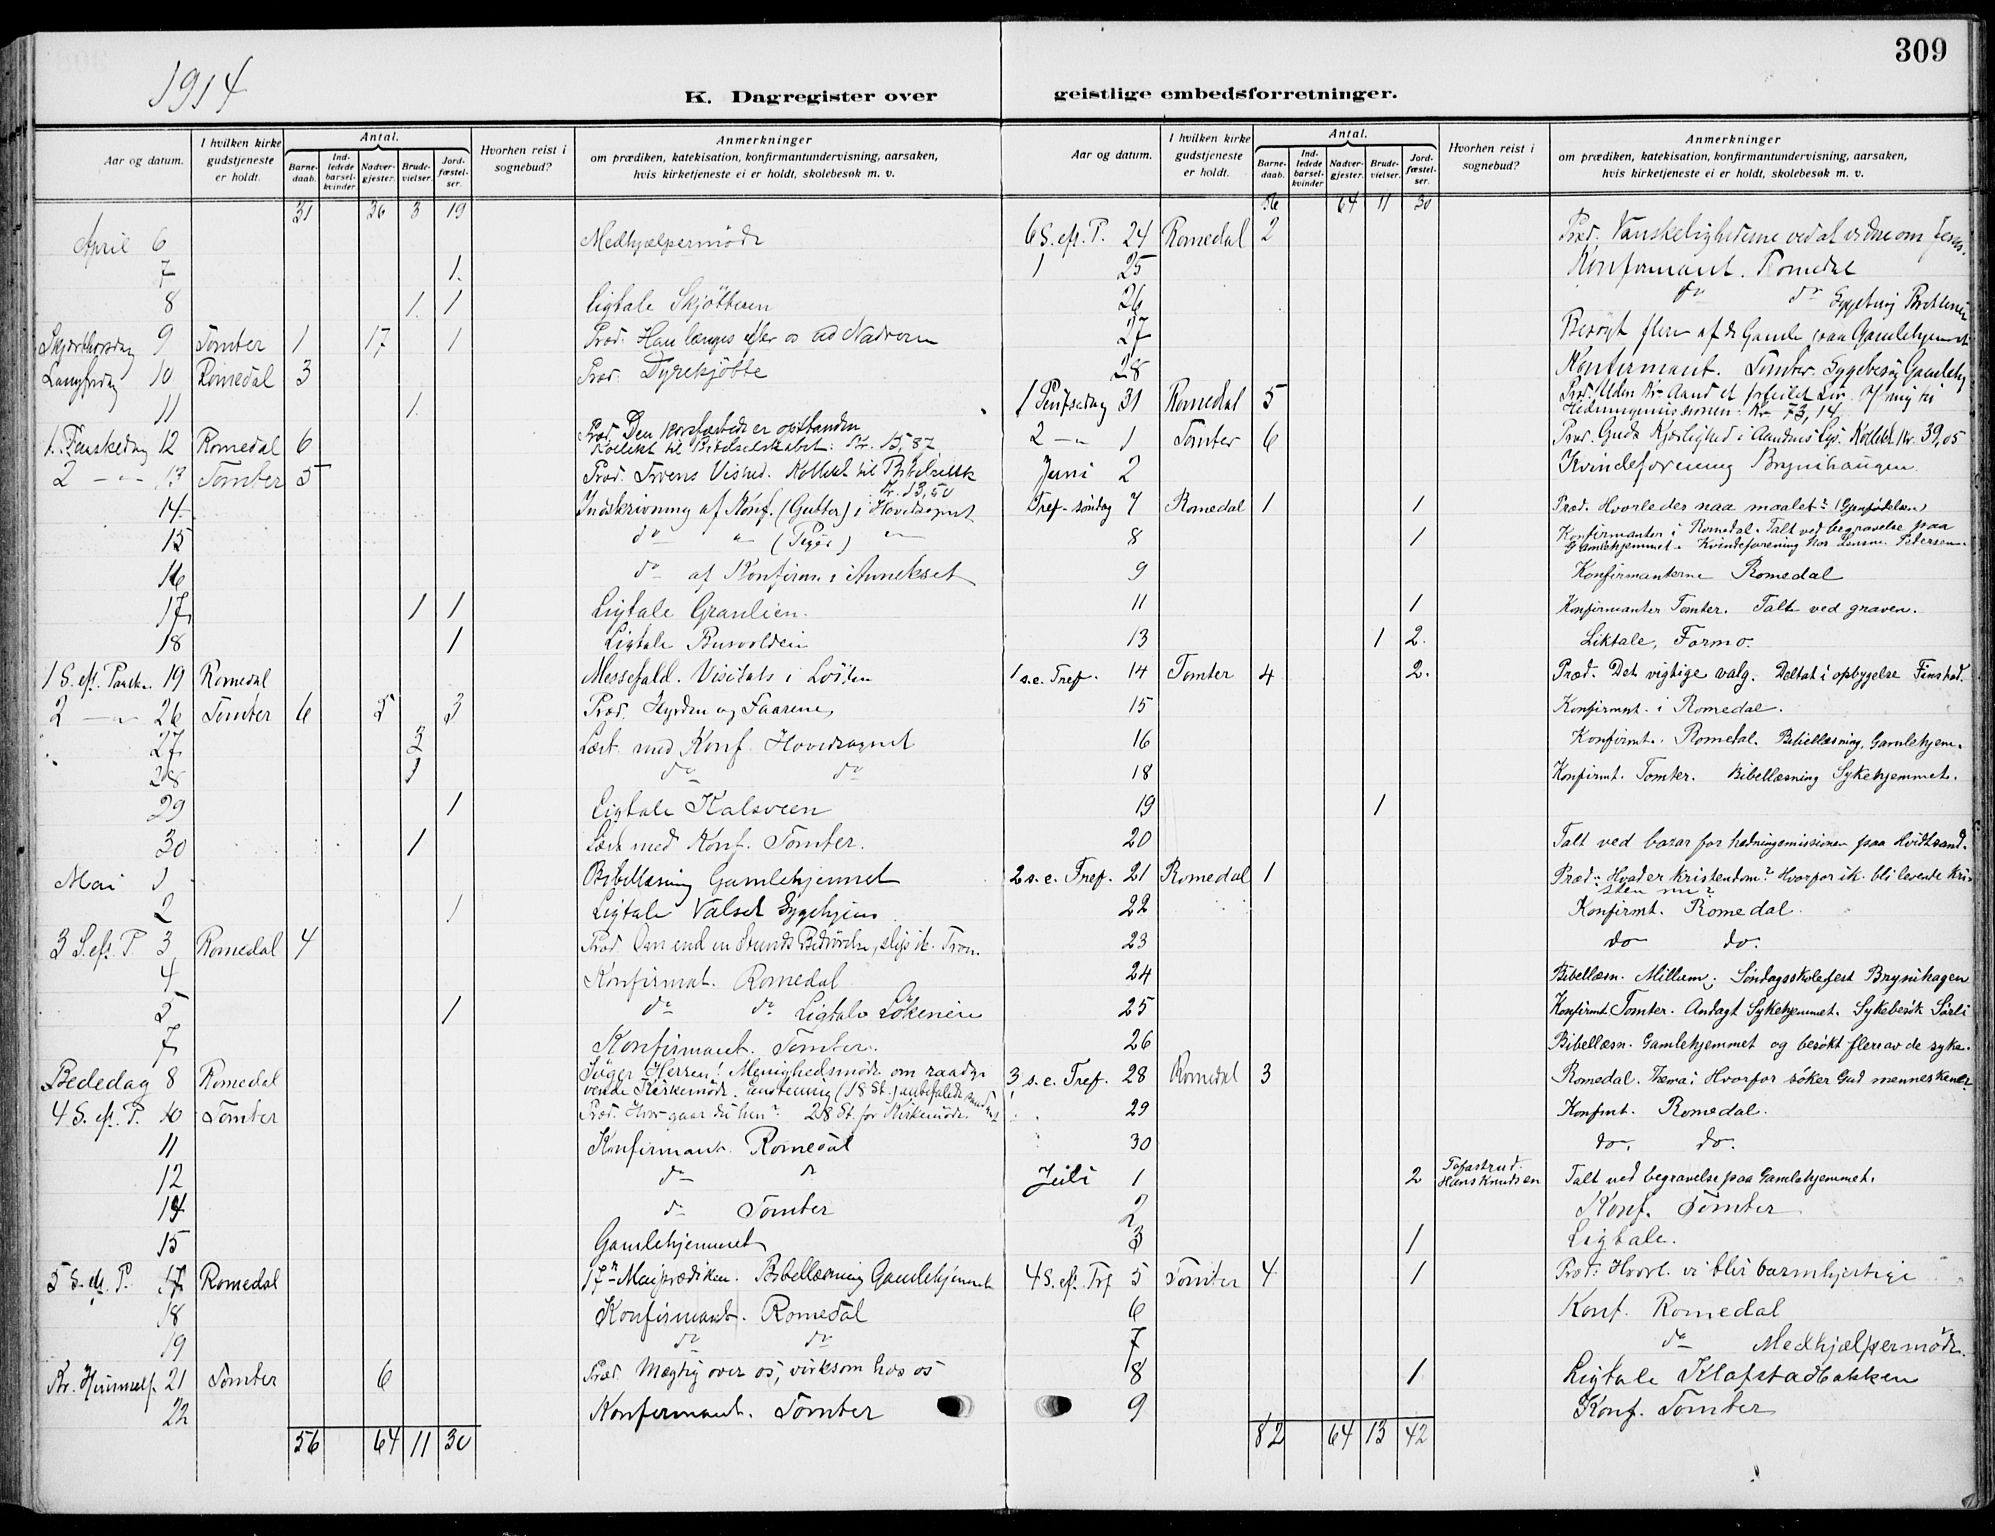 309
1914
K. Dagregister over geistlige embedsforretninger.
Aar og datum. I hvilken kirke gudstjeneste er holdt. Antal. Barnedaab. Indledede barselkvinder Nadvergjester. Brudevielser. Jordfæstelser. Hvorhen reist i sognebud? Anmerkninger om prædiken, katekisation, konfirmantundervisning, aarsaken, hvis kirketjeneste ei er holdt, skolebesøk m. v.
31 36 3 19
April 6 Medhjælpermöde
7 1
8 1 1 Ligtale Skjötteren
Skjærthorsdag 9 Tomter 1 17 1 Præd. Han længes efter os ad Nadveren
Langfredag 10 Romedal 3 Præd. Dyrekjöbte
11 1
1. Paaskedag 12 Romedal 6 Præd. Den korsfæstede er opstanden
Kollekt til Bibelselskabet: Kr. 15,87
2 -"- 13 Tomter 5 Præd. Troens Vished. Kollekt til Bibelselsk
Kr. 13,50
14 Indskrivning af Konf. (Gutter) i Hovedsognet
15 do " (Piger) "
16 do af Konfirm. i Annekset
17 1 1 Ligtale Granlien.
18 1 Ligtale Busvolden
1 S. eft. Paaske. 19 Romedal Messefald. Visitats i Löiten
2 -"- 26 Tomter 6 5 3 Præd. Hyrden og Faarene,
27 2 Læst med Konf. Hovedsognet
28 1 do do
29 1 Ligtale Kalsveen
30 1 Læst med Konf. Tomter.
Mai 1 Bibellæsning Gamlehjemmet
2 1 Ligtale Valset Sygehjem
3 S. eft. P. 3 Romedal 4 Præd. Om end en Stunds Bedrövelse, slip ik. Troen
4 Konfirmat. Romedal
5 1 do do Ligtale Lökenein
7 Konfirmant. Tomter.
Bededag 8 Romedal Söger Herren! Menighedsmöde om raadgi
vende Kirkemöde. enstemmig (18 St.) anbefalede
4 S. eft. P. 10 Tomter Præd. Hvor gaar du hen? 28 St. for Kirkemöde.
11 Konfirmant. Romedal
12 do do
14 do Tomter
15 Gamlehjemmet
5 S. eft. P. 17 Romedal 17de Maiprædiken. Bibellæsning Gamlehjemmet
18 Konfirmant. Romedal
19 do do
Kr. Himmelf. 21 Tomter 6 Præd. Mægtig over os, virksom hos os
22 Konfirmant. Tomter
56 64 11 30
Aar og datum. I hvilken kirke gudstjeneste er holdt. Antal. Barnedaab. Indledede barselkvinder Nadvergjester. Brudevielser. Jordfæstelser. Hvorhen reist i sognebud? Anmerkninger om prædiken, katekisation, konfirmantundervisning, aarsaken, hvis kirketjeneste ei er holdt, skolebesøk m. v.
56 64 11 30
6 S. eft. P. 24 Romedal 2 Præd. Vanskelighederne ved at vidne om Jesus.
25 Konfirmant. Romedal
26 do do Sygebesøg
27 Besögt flere af de Gamle paa Gamlehjemmet
28 Konfirmant. Tomter. Sygebesög Gamlehj
1 Pintsedag 31 Romedal 5 Præd. Uden Kr. Aand et forfeilet Liv. Ofring til
Hedningemissionen. Kr. 73,14
2 -"- 1 Tomter 6 Præd. Guds Kjærlighed i Aandens Lys. Kollekt kr. 39,05
Juni 2 Kvindeforening Brynihaugen
Tref. söndag 7 Romedal 1 1 Præd. Hvorledes naa maalet? (Gjenfødelsen)
8 1 Konfirmanter i Romedal. Talt ved begravelse paa
Gamlehjemmet. Kvindeforening hos Lensm. Petersen.
9 Konfirmanterne Romedal
11 1 Konfirmanter Tomter. Talt ved graven.
13 1 2 Liktale, Formo.
1 s.e. Tref. 14 Tomter 4 2 Præd. Det vigtige valg. Deltat i opbygelse Finstad.
15 Konfirmnt. i Romedal.
16 Konfirmt. Romedal. Bibellæsning, Gamlehjem.
18 Konfirmt. Tomter. Bibellæsning Sykehjemmet.
19 1
20 Talt ved bazar for hedningemissionen paa Hvidtsand.
2 s. e. Tref. 21 Romedal 1 Præd.: Hvad er Kristendom? Hvorfor ik. bli levende kri-
sten nu?
22 Konfirmt. Romedal.
23 do do.
24 Bibellæsn. Millum; Søndagsskolefest Brynihagen
25 Konfirmt Tomter. Andagt Sykehjemmet. Sykebesök Sørli
26 Bibellæsn. Gamlehjemmet og besökt flere av de syke.
3 s.e. Tref. 28 Romedal 3 Romedal. Tema: Hvorfor söker Gud menneskene?
29 Konfmt. Romedal.
30 do. do.
Juli 1 2 Tofastrud. Hans Knudsen Talt ved begravelse paa Gamlehjemmet.
2 Konf. Tomter
3 1 Ligtale.
4 S. eft. Trf 5 Tomter 4 1 Præd: Hvorl. vi blir barmhjertige
6 Konf. Romedal
7 do Medhjælpermöde.
8 1 Ligtale Klafstadbakken
9 Konf. Tomter
82 64 13 42